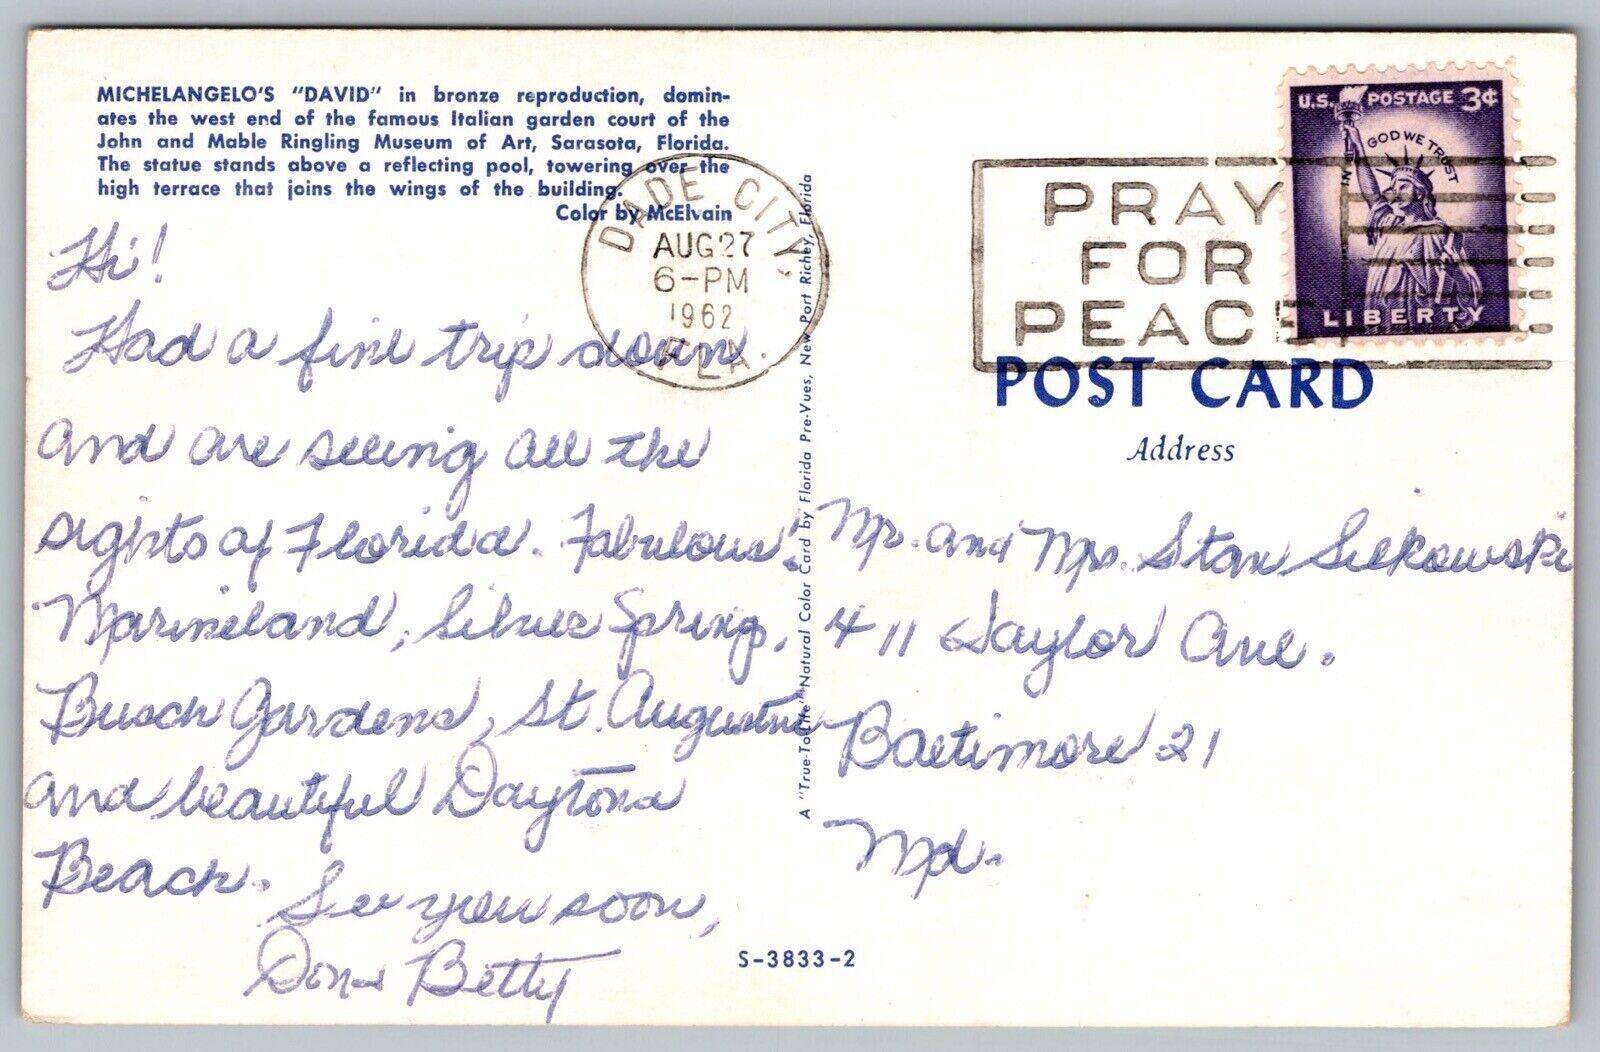 MICHELANGELO'S "DAVID" in bronze reproduction, domin-
ates the west end of the famous Italian garden court of the
John and Mable Ringling Museum of Art, Sarasota, Florida.
The statue stands above a reflecting pool, towering over the
high terrace that joins the wings of the building.
Color by McElvain
Hi!
Had a fine trip down
and are seeing all the
sights of Florida. Fabulous!
Marineland, Silver Spring,
Busch Gardens, St. Augustine
and beautiful Daytona
Beach.
See you soon,
Don & Betty
DADE CITY,
AUG 27
6-PM
1962
FLA
A "True-To-Life" Natural Color Card by Florida Pre-Vues, New Port Richey, Florida
PRAY
FOR
PEACE
U.S. POSTAGE 3¢
IN GOD WE TRUST
LIBERTY
POST CARD
Address
Mr. and Mrs. Stan Sulkowski
411 Taylor Ave.
Baltimore 21
Md.
S-3833-2